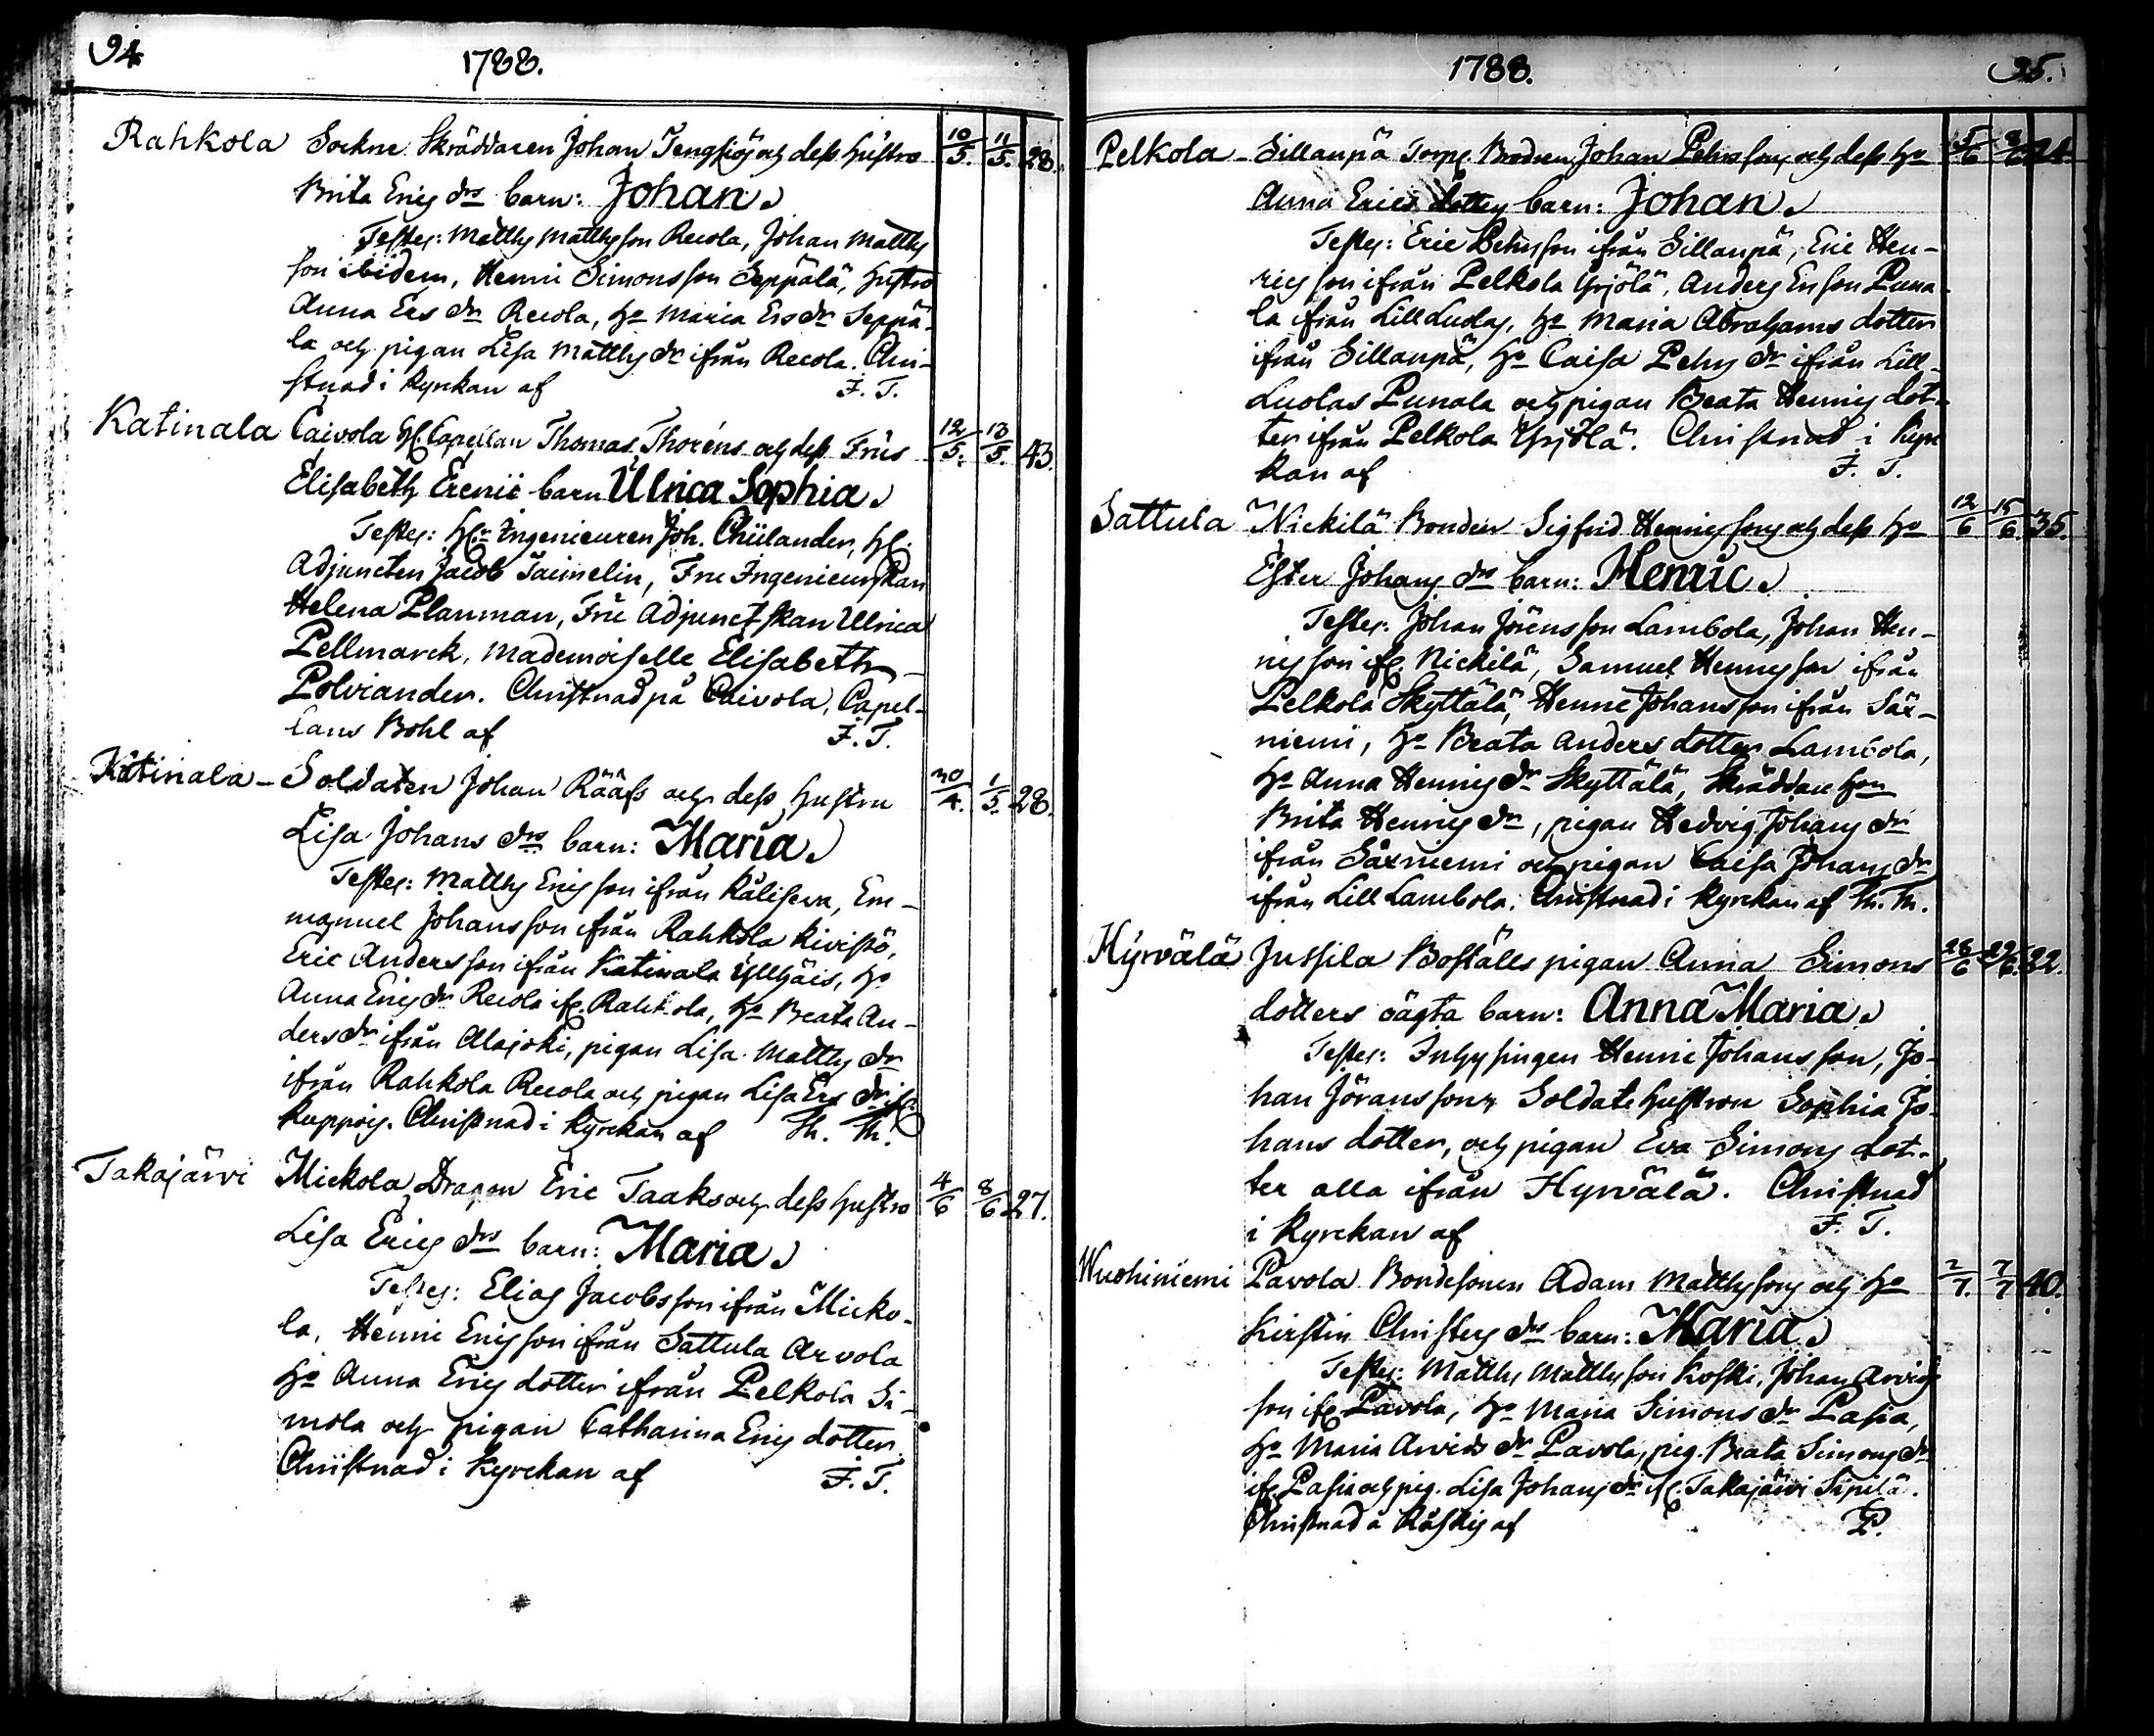 94.
1788.
Rahkola Sockne Skräddaren Johan Tengsiös och dess hustro 10/5. 11/5. 28.
Brita Erics drs barn: Johan.
Testes: Matths Matthsson Recola, Johan Matths
son ibidem, Henric Simonsson Seppälä, hustro
Anna Ers dr Recola, ho Maria Ers dr Seppä-
lä och pigan Lisa Matths dr ifrån Recola. Chri-
stnad i Kyrkan af F. T.
Katinala Caivola Hr Capellan Thomas Thoréns och dess Frus 12/5. 13/5. 43.
Elisabeth Erenii barn Ulrica Sophia.
Testes: Hr Ingenieuren Joh. Chülander, Hr
Adjuncten Jacob Taumelin, Fru Ingenieurskan
Helena Planman, Fru Adjunctskan Ulrica
Pellmarck, Mademoiselle Elisabeth
Polviander. Christnad på Caivola, Capel-
lans Bohl af F. T.
Katinala - Soldaten Johan Rääfs och dess hustru 30/4. 1/5. 28.
Lisa Johans drs barn: Maria.
Testes: Matths Ericsson ifrån Kälisewa, Em-
manuel Johansson ifrån Rahkola Kivistö,
Eric Andersson ifrån Katinala Yllhäis, ho
Anna Erics dr Recola ifr. Rahkola, ho Beata An-
ders dr ifrån Alajoki, pigan Lisa Matths dr
ifrån Rahkola Recola och pigan Lisa Ers dr ifr.
Kappois. Christnad i Kyrckan af Th. Th.
Takajärvi Mickola Dragon Eric Taaks och dess hustro 4/6 8/6 27.
Lisa Erics drs barn: Maria.
Testes: Elias Jacobsson ifrån Micko-
la, Henric Ericsson ifrån Sattula Arvola
ho Anna Erics dotter ifrån Pelkola Si-
mola och pigan Catharina Erics dotter.
Christnad i Kyrckan af F. T.
1788.
95.
Pelkola - Sillanpä Torp. Brodren Johan Pehrssons och dess ho 5/6 8/6 24
Anna Erics dotters barn: Johan.
Testes: Eric Pehrsson ifrån Sillanpä, Eric Hen-
ricsson ifrån Pelkola Yrjölä, Anders Ersson Puna-
la ifrån Lill Luolas, ho Maria Abrahams dotter
ifrån Sillanpä, ho Caisa Pehrs dr ifrån Lill-
Luolas Punala och pigan Beata Henrics dot-
ter ifrån Pelkola Yrjölä. Christnad i Kyr
kan af F. T.
Sattula Nickilä Bonden Sigfrid Henricssons och dess ho 12/6 15/6. 35.
Ester Johans drs barn: Henric.
Testes: Johan Jöransson Lambola, Johan Hen-
ricsson ifr. Nickilä, Samuel Henricsson ifrån
Pelkola Skyttälä, Henric Johansson ifrån Säx-
niemi, ho Beata Anders dotter Lambola,
ho Anna Henrics dr Skyttälä, Skräddare hon
Brita Henrics dr, pigan Hedvig Johans dr
ifrån Säxniemi och pigan Caisa Johans dr
ifrån Lill Lambola. Christnad i Kyrckan af Th. Th.
Hyrvälä Jussila Boställs pigan Anna Simons 28/6 29/6. 22.
dotters oägta barn: Anna Maria.
Testes: Inhysingen Henric Johansson, Jo-
han Jöransson, Soldate hustron Sophia Jo-
hans dotter, och pigan Eva Simons dot-
ter alla ifrån Hyrvälä. Christnad
i Kyrckan af F. T.
Wuohiniemi Pavola Bondesonen Adam Matthssons och ho 2/7. 7/7 40.
Kirstin Christers drs barn: Maria.
Testes: Matths Matthsson Koski, Johan Arvids
son ifr Pavola, ho Maria Simons dr Pasia,
ho Maria Arvids dr Pavola, pig. Beata Simons dr
ifr Pasia och pig. Lisa Johans dr ifr. Takajärvi Sipilä.
Christnad å Koskis af P.